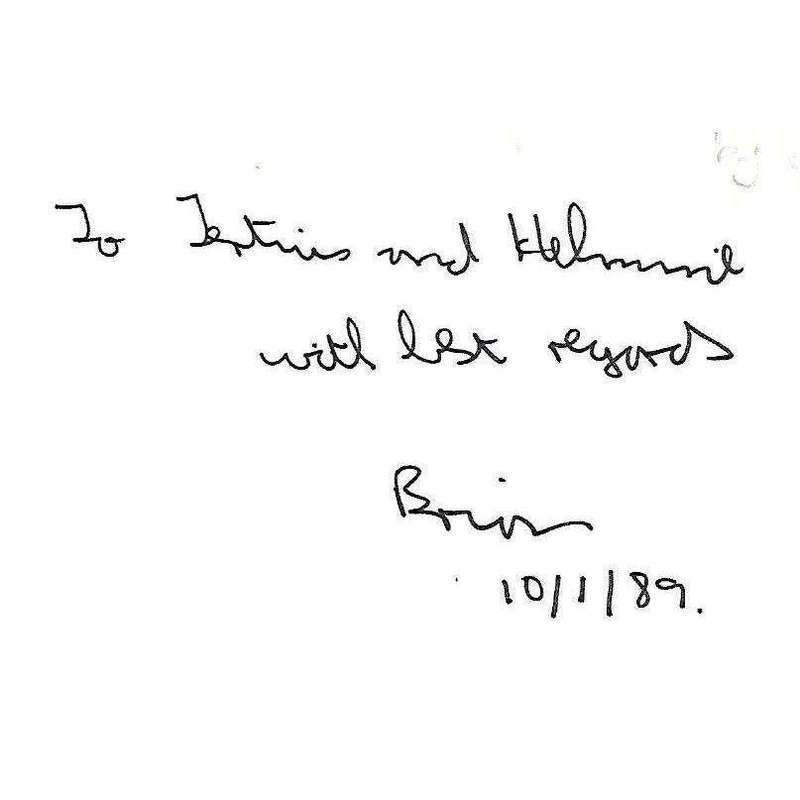 To Tertius and Helmine
with best regards
Brian
10/1/89.